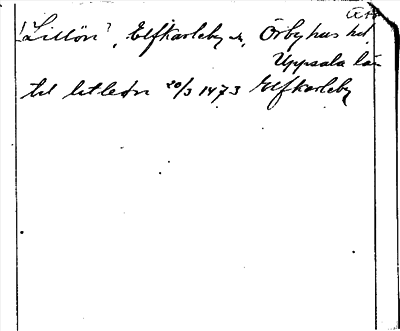 "Lillön", Elfkarleby s, Örbyhus hd,
Uppsala län
20/3 1473 Elfkarleby